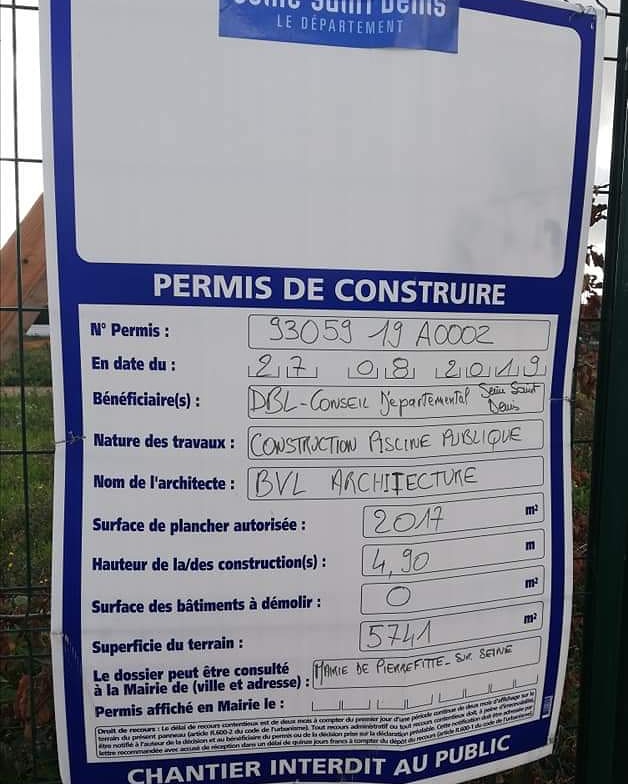 Seine Saint Denis
LE DÉPARTEMENT
PERMIS DE CONSTRUIRE
N° Permis : 93059 19 A0002
En date du : 27 08 2019
Bénéficiaire(s) : DBL-CONSEIL Départemental Seine Saint Denis
Nature des travaux : CONSTRUCTION PISCINE PUBLIQUE
Nom de l'architecte : BVL ARCHITECTURE
Surface de plancher autorisée : 2017 m²
Hauteur de la/des construction(s) : 4,90 m
Surface des bâtiments à démolir : 0 m²
Superficie du terrain : 5741 m²
Le dossier peut être consulté
à la Mairie de (ville et adresse) : MAIRIE DE PIERREFITTE-SUR SEINE
Permis affiché en Mairie le :
Droit de recours : Le délai de recours contentieux est de deux mois à compter du premier jour d'une période continue de deux mois d'affichage sur le
terrain du présent panneau (article R.600-2 du code de l'urbanisme). Tout recours administratif ou tout recours contentieux doit, à peine d'irrecevabilité,
être notifié à l'auteur de la décision et au bénéficiaire du permis ou de la décision prise sur la déclaration préalable. Cette notification doit être adressée par
lettre recommandée avec accusé de réception dans un délai de quinze jours francs à compter du dépôt du recours (article R.600-1 du code de l'urbanisme).
CHANTIER INTERDIT AU PUBLIC